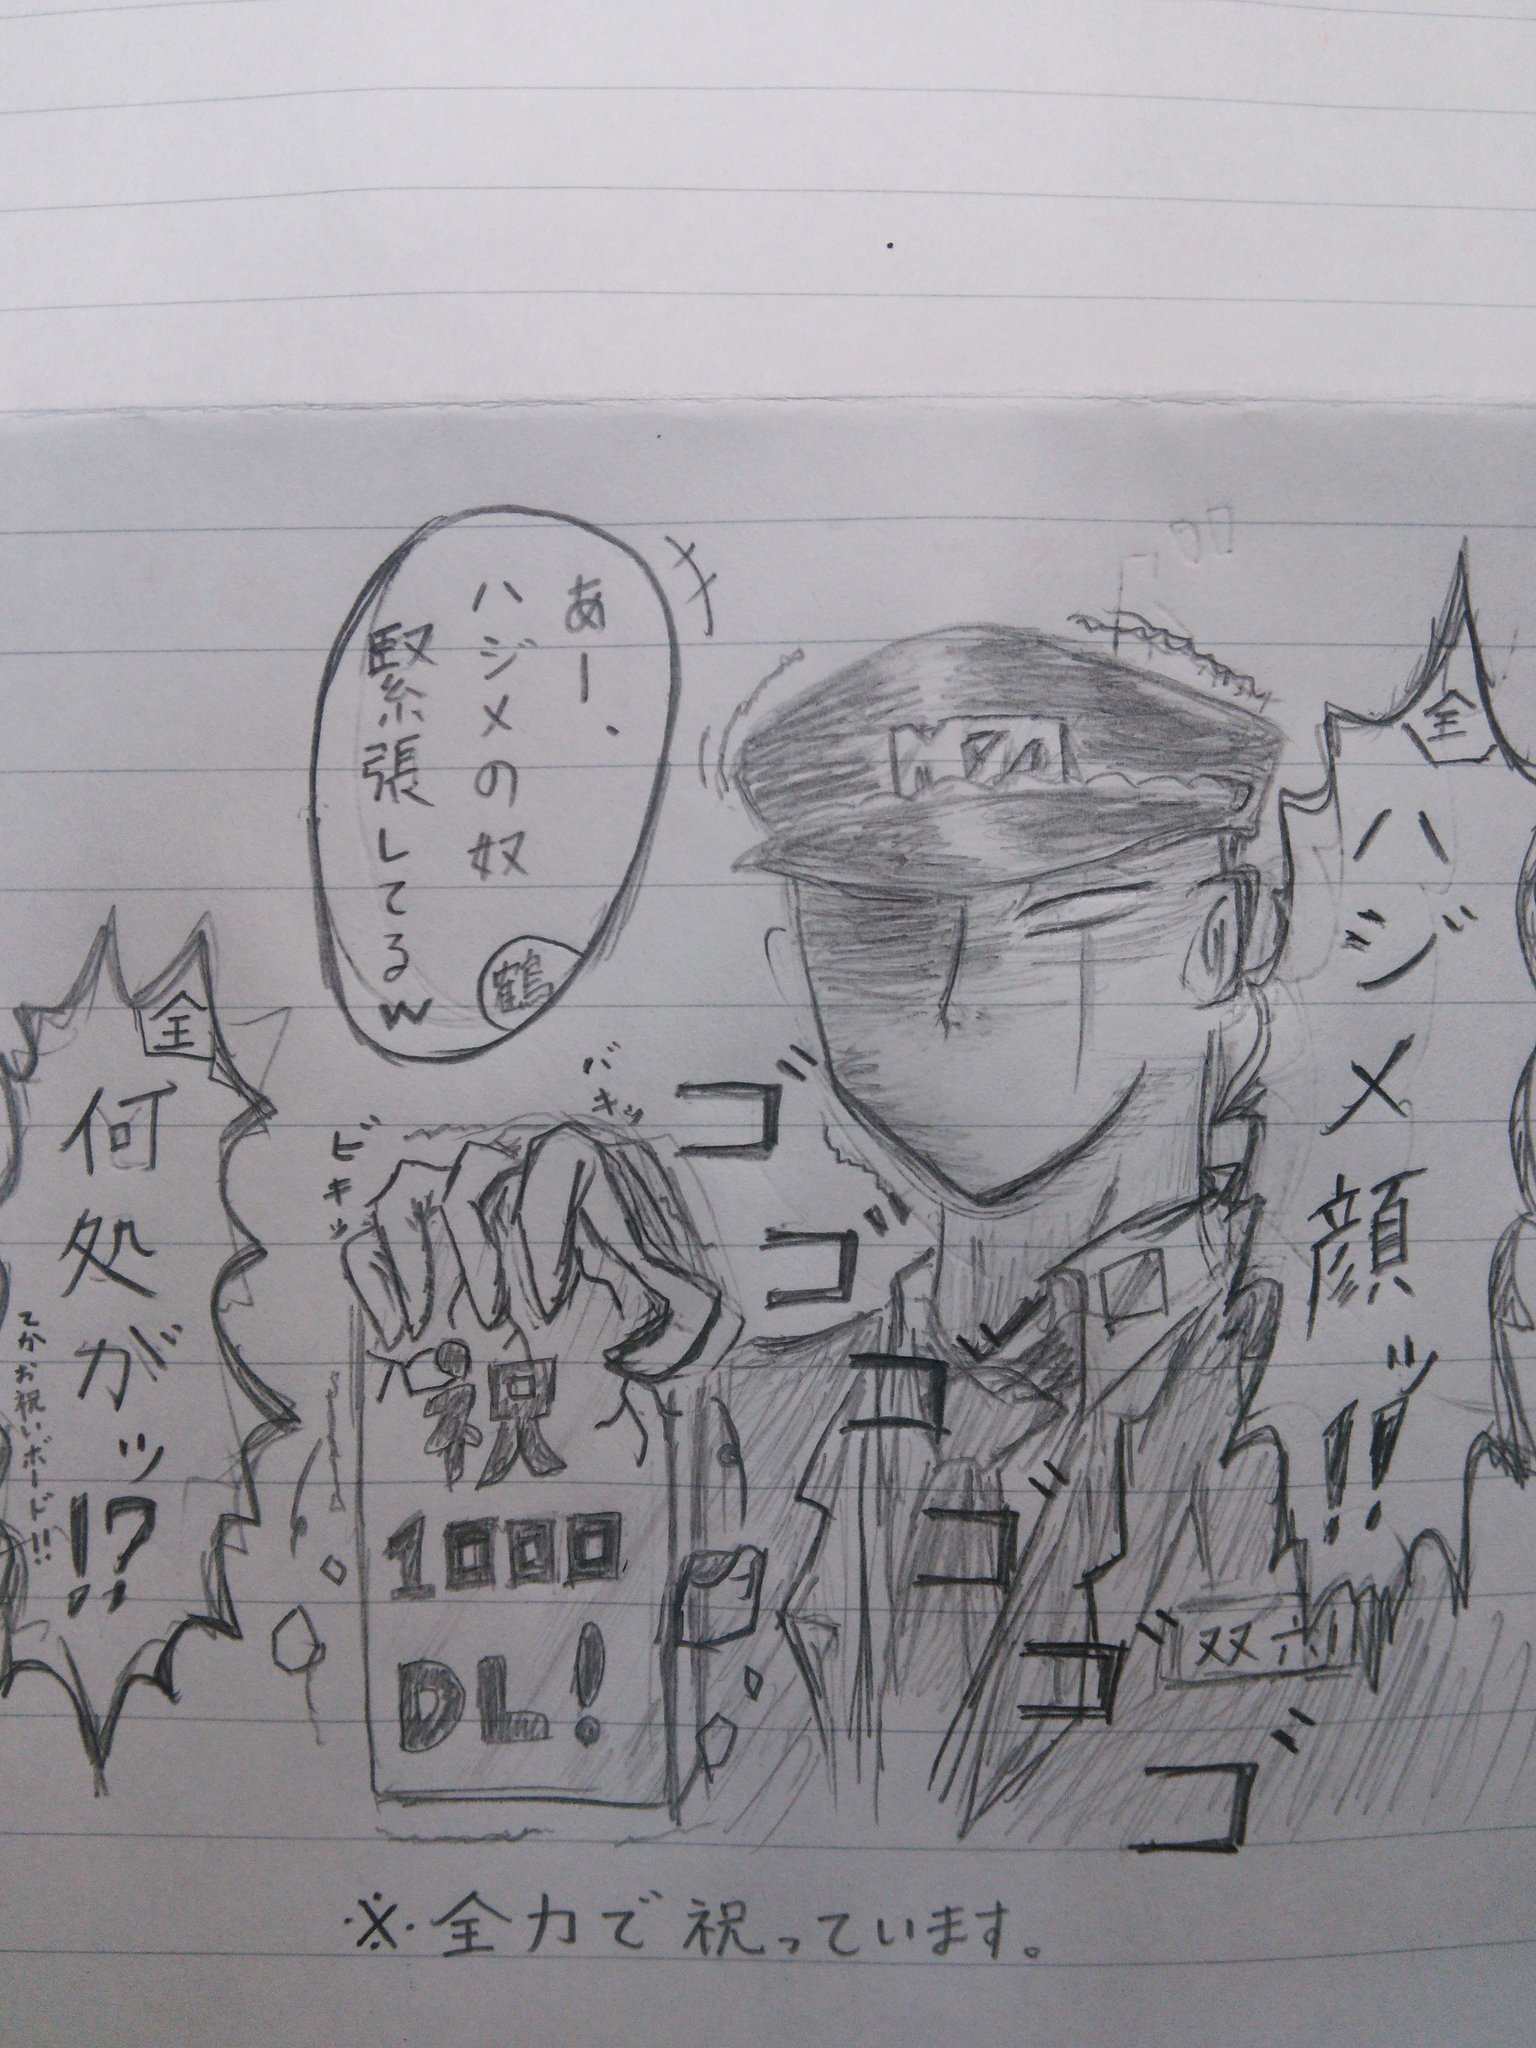 全
ハジメ顔ッ!!
あー、
ハジメの奴
緊張してるw
鶴
ゴゴゴゴゴゴ
バキッ
ビキッ
祝
1000
DL!
双六
全
何処がッ!?
てかお祝いボード!!
※全力で祝っています。